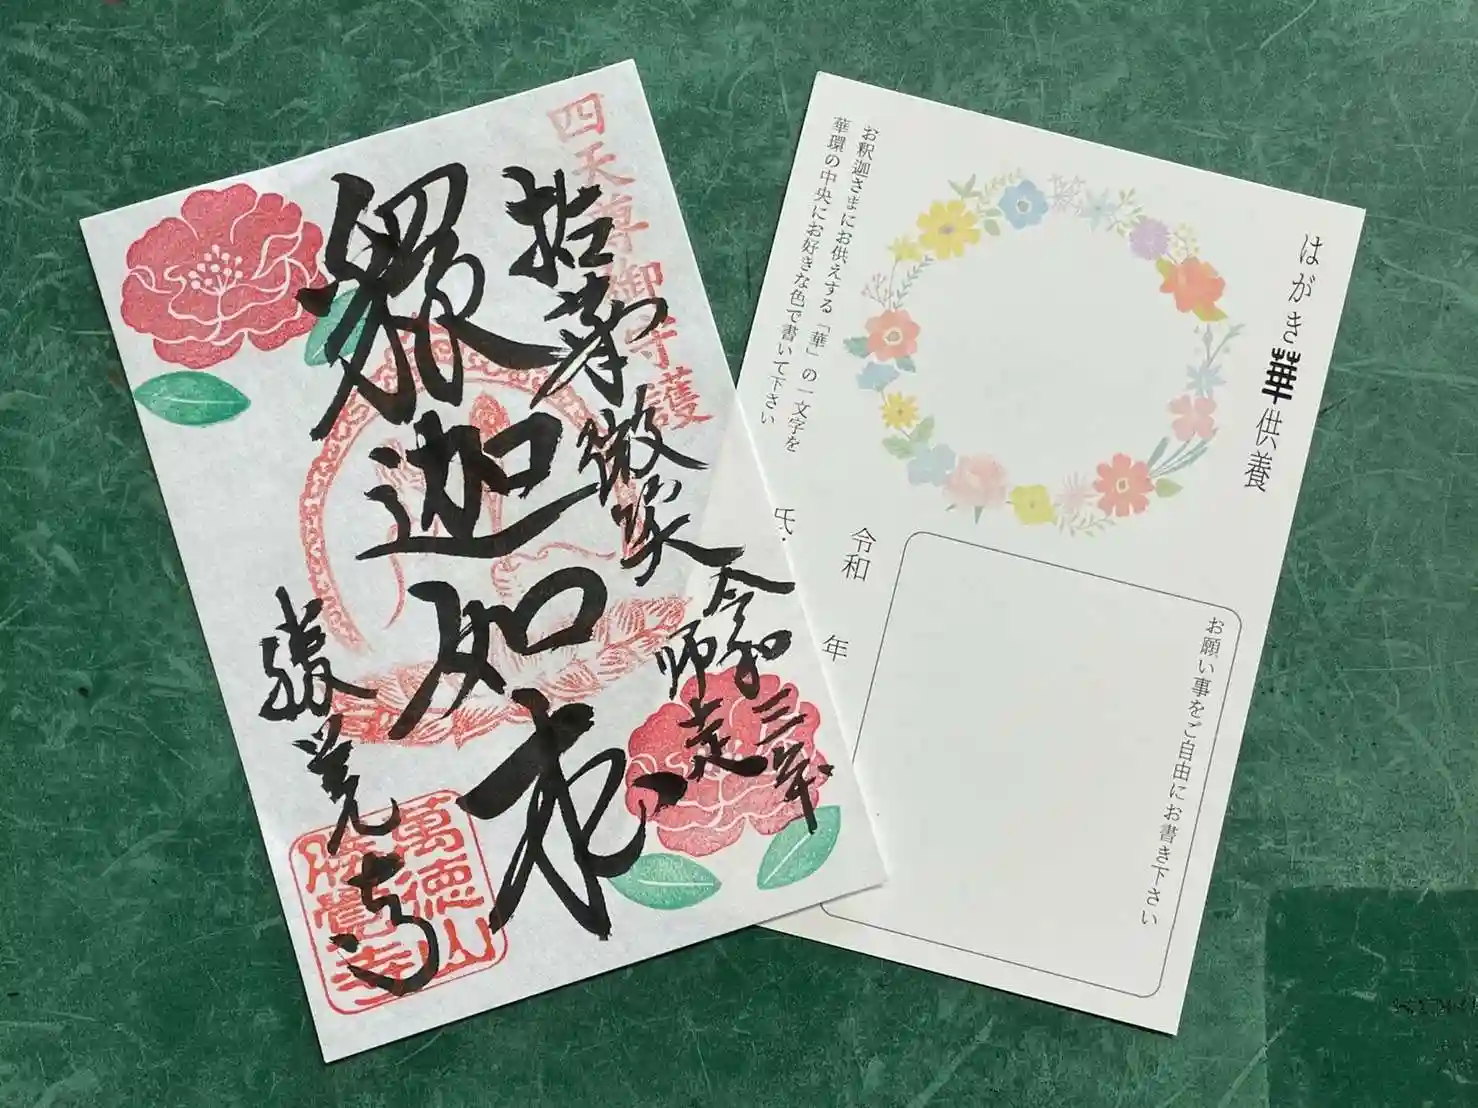 四天尊御守護
拈華微笑
釋迦如来
令和三年
師走
勝覚寺
萬徳山
勝覺寺
はがき華供養
お願い事をご自由にお書き下さい
お釈迦さまにお供えする「華」の一文字を
華環の中央にお好きな色で書いて下さい
令和 年
氏